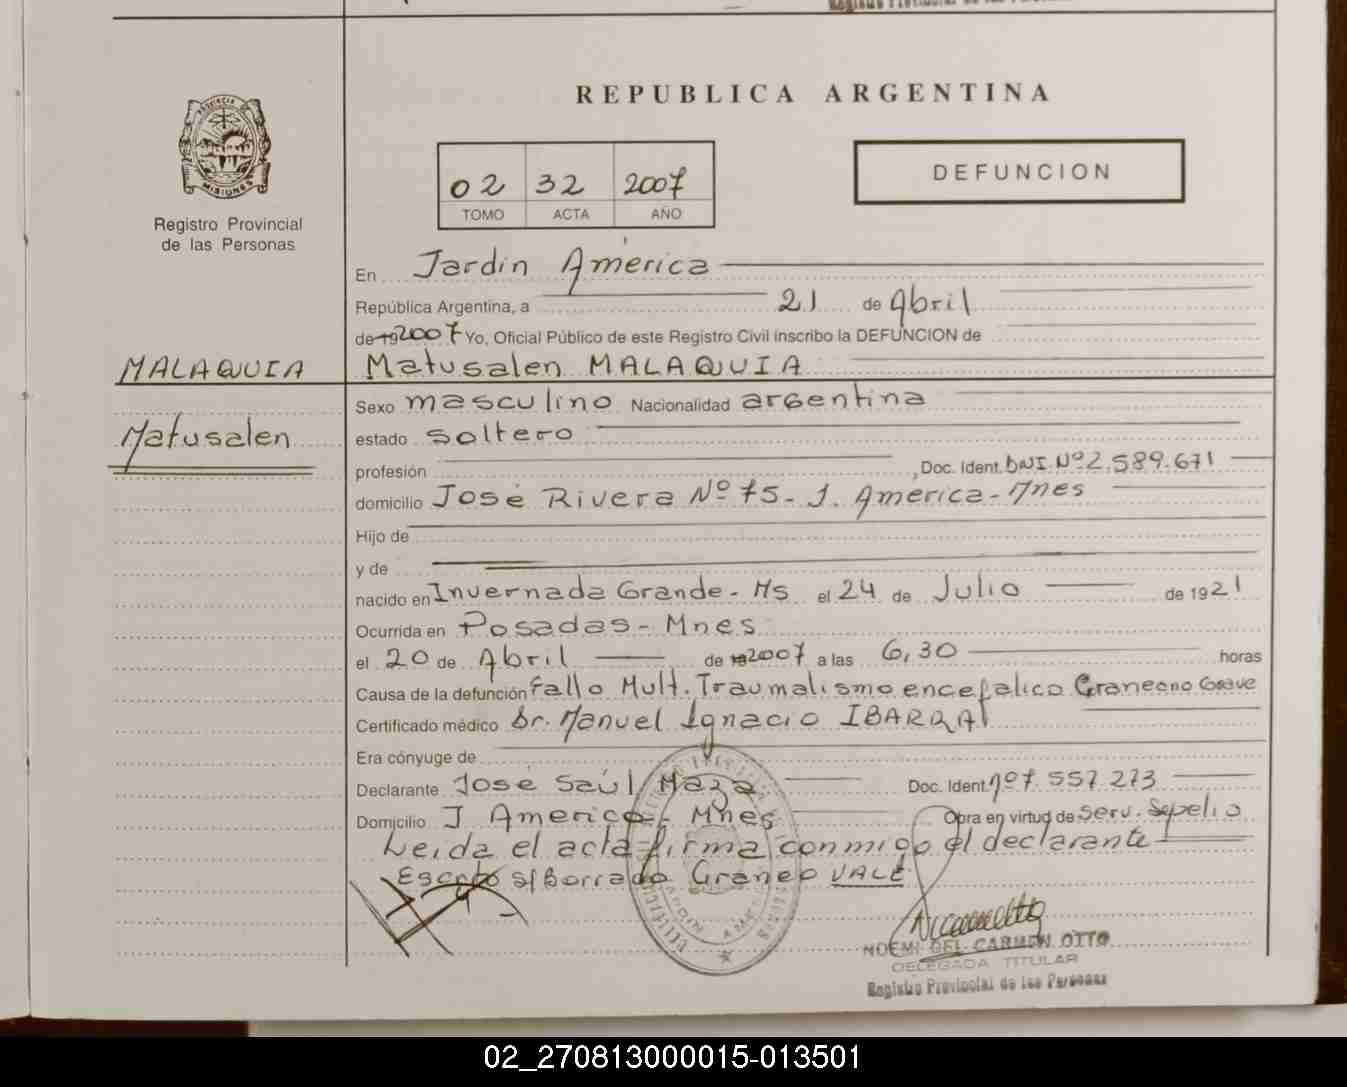 REPUBLICA ARGENTINA
02 32 2007
TOMO ACTA AÑO
DEFUNCION
PROVINCIA
MISIONES
Registro Provincial
de las Personas
En Jardin América
República Argentina, a 21 de Abril
de 19 2007 Yo, Oficial Público de este Registro Civil inscribo la DEFUNCION de
MALAQUIA
Matusalen MALAQUIA
Sexo masculino Nacionalidad argentina
Matusalen
estado Soltero
profesión , Doc. Ident. DNI. Nº 2.589.671
domicilio José Rivera Nº 75 - J. America - Mnes
Hijo de
y de
nacido en Invernada Grande - Ms el 24 de Julio de 19 21
Ocurrida en Posadas - Mnes
el 20 de Abril de 19 2007 a las 6,30 horas
Causa de la defunción Fallo Mult. Traumatismo encefalico Graneano Grave
Certificado médico Dr. Manuel Ignacio IBARRA
Era cónyuge de
Declarante José Saúl Maza Doc. Ident. nº 7.557.273
Domicilio J America - Mnes Obra en virtud de Serv. Sepelio
Leida el acta firma conmigo el declarante
Escrito S/Borrado Graneo VALE
NOEMI DEL CARMEN OTTO
DELEGADA TITULAR
Registro Provincial de las Personas
02_270813000015-013501